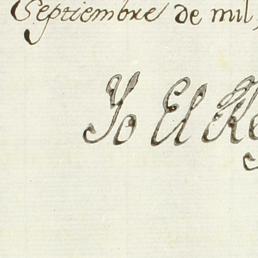 Septiembre de mil,
Yo El Re